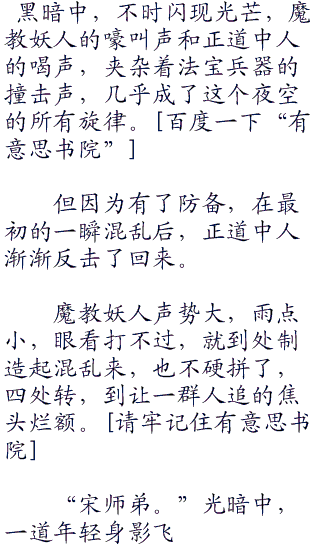 黑暗中，不时闪现光芒，魔
教妖人的嚎叫声和正道中人
的喝声，夹杂着法宝兵器的
撞击声，几乎成了这个夜空
的所有旋律。[百度一下“有
意思书院”]
但因为有了防备，在最
初的一瞬混乱后，正道中人
渐渐反击了回来。
魔教妖人声势大，雨点
小，眼看打不过，就到处制
造起混乱来，也不硬拼了，
四处转，到让一群人追的焦
头烂额。[请牢记住有意思书
院]
“宋师弟。”光暗中，
一道年轻身影飞